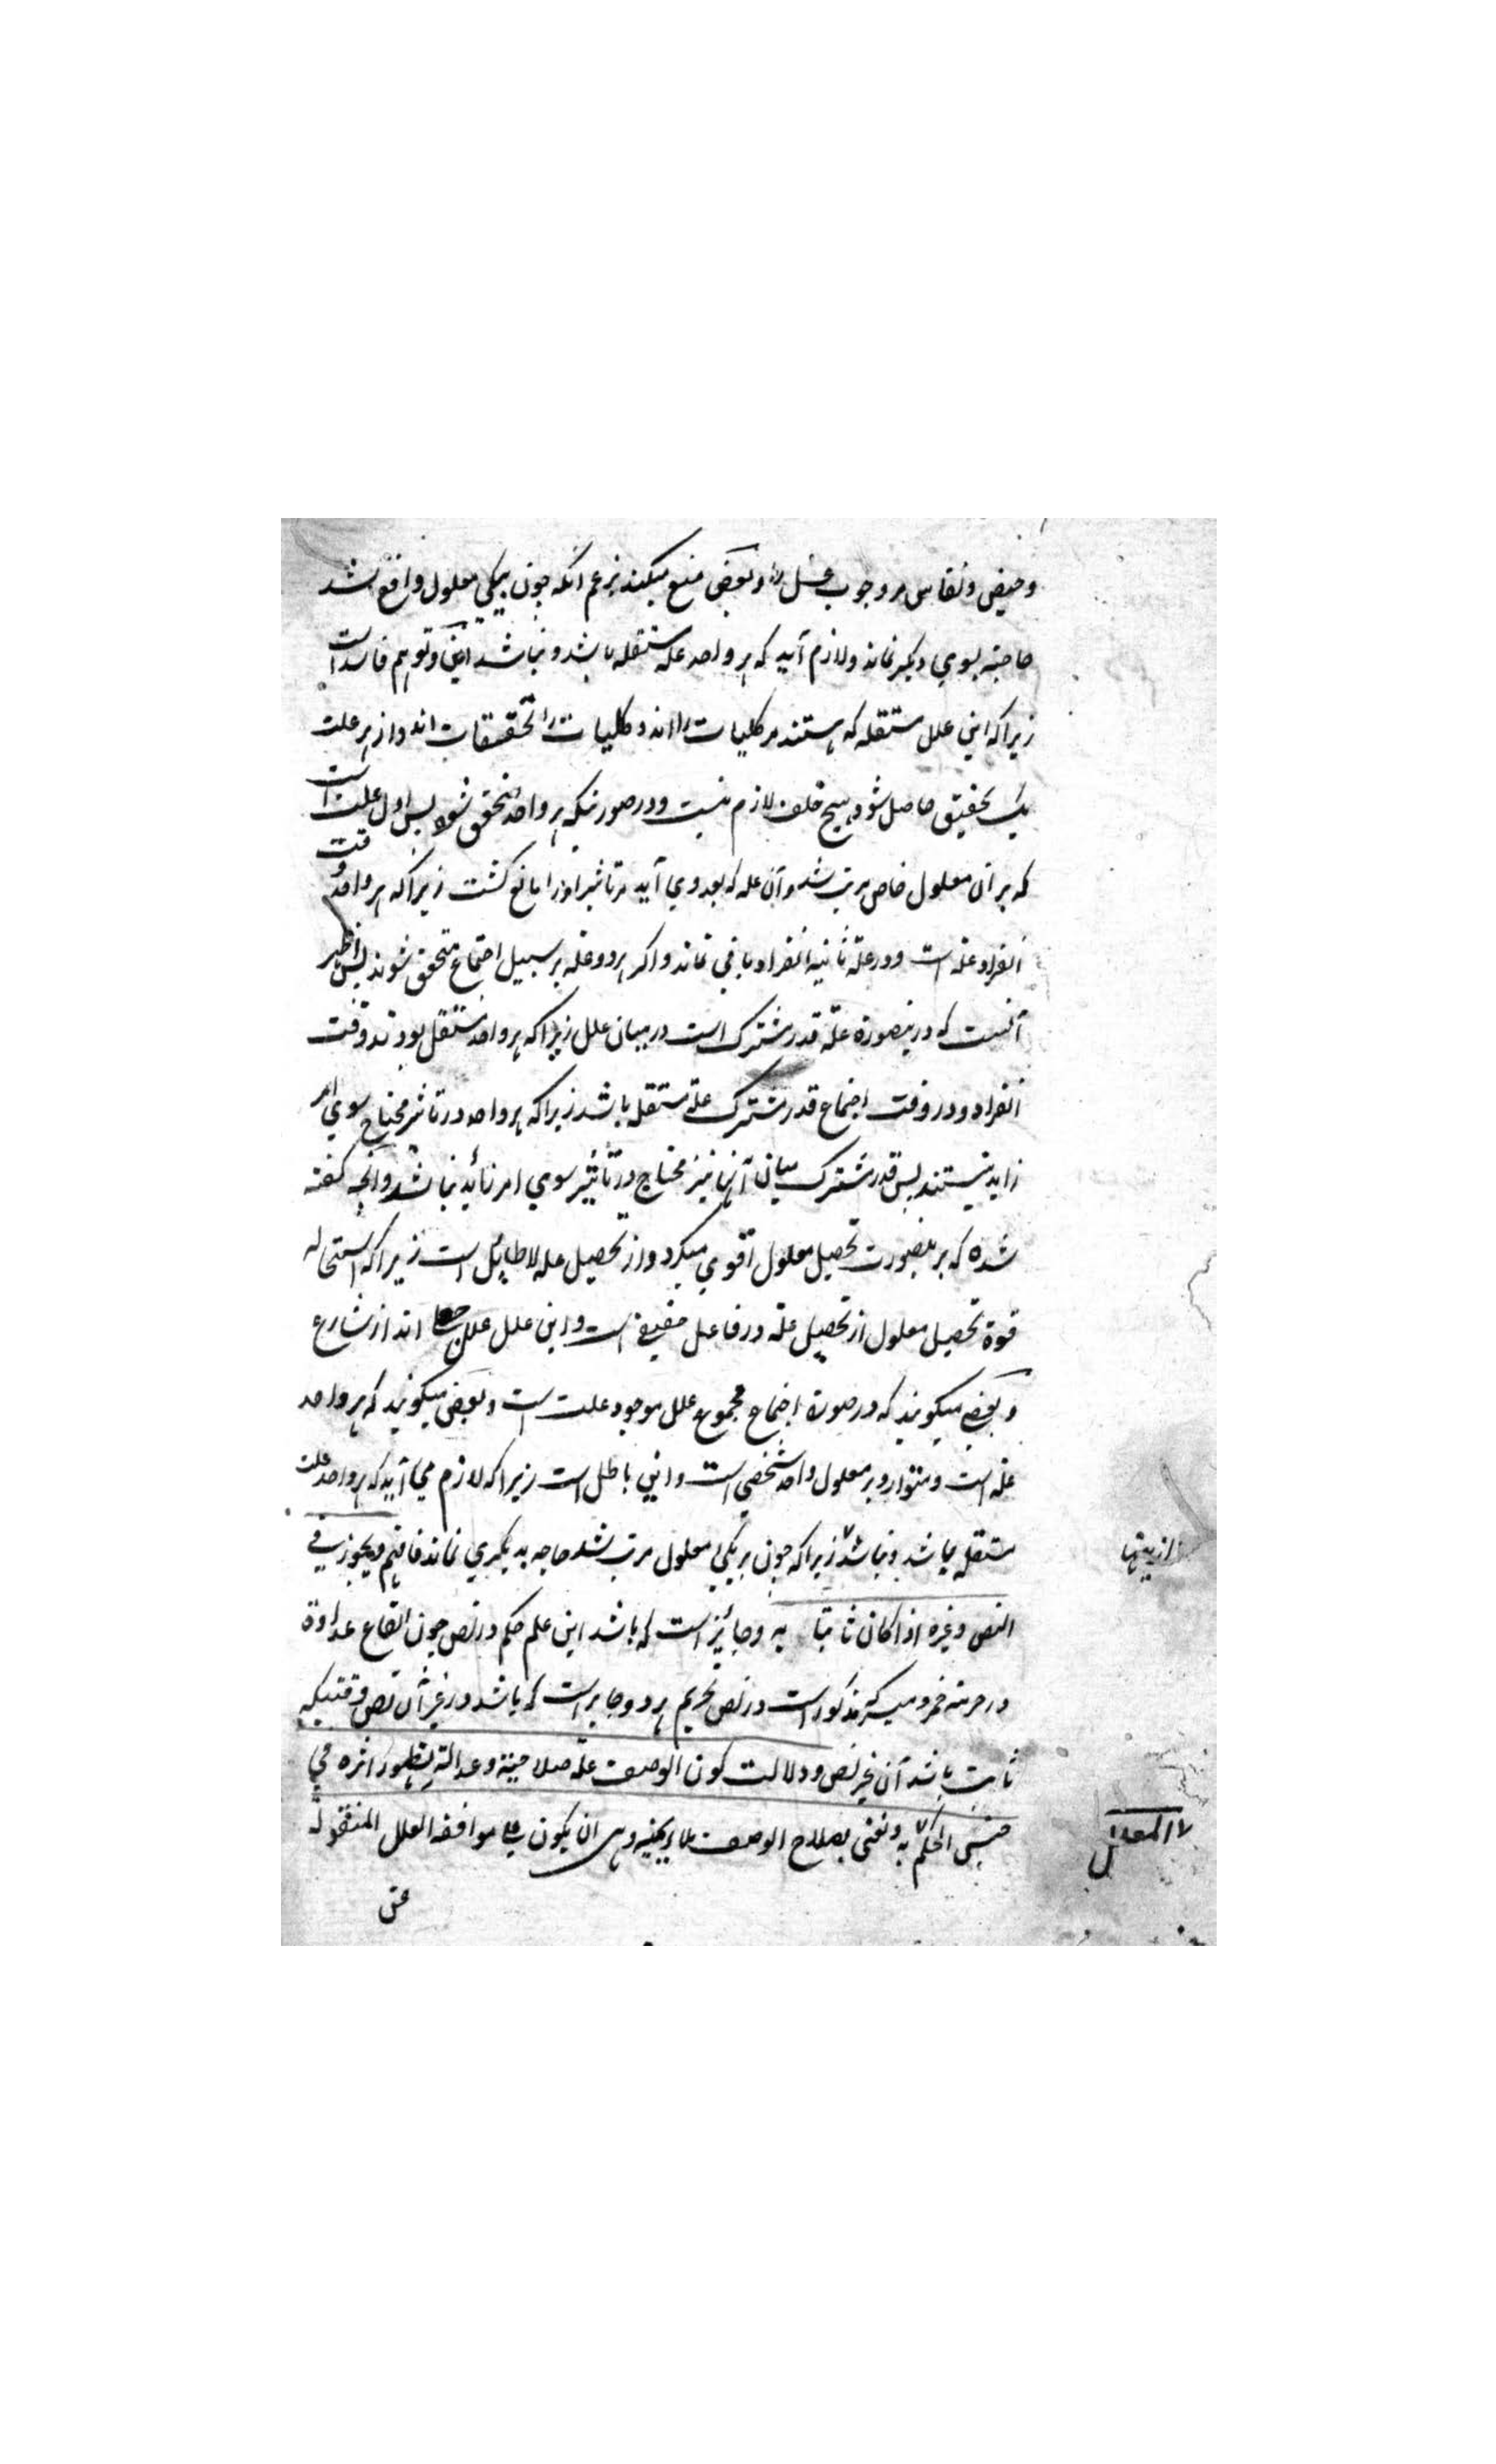 وحیض و نفاس مر وجوب غسل را و بعضی منع میکنند بزعم آنکه چون بیکی معلول واقع شد
حاجته بسوی دیگر نماند و لازم آید که هر واحد علة مستقله باشد و نباشد این توهم فاسد است
زیرا که این علل مستقله که هستند مر کلیات را اند و کلیات را تحققات اند و از هر علت
یک تحقیق حاصل شود هیچ خلف لازم نیست و در صورتیکه هر واحد متحقق شود پس اول علت است
که بر آن معلول خاص مرتب شد و آن علة که بعد وی آید مر تاثیر او را مانع گشت زیرا که هر واحد وقت
انفراد علة است و در علة ثانیه انفراد باقی نماند و اگر هر دو علة بر سبیل اجتماع متحقق شوند پس اظهر
آنست که در ینصورة علة قدر مشترک است در میان علل زیرا که هر واحد مستقل بودند وقت
انفراد و در وقت اجتماع قدر مشترک علة مستقله باشد زیرا که هر واحد در تاثیر محتاج سوی امر
زاید نیستند پس قدر مشترک میان آنها نیز محتاج در تأثیر سوی امر زائد نباشد و آنچه گفته
شده که بر ینصورت تحصیل معلول اقوی میگردد از تحصیل علة لا طایل است زیرا که استحاله
قوة تحصیل معلول از تحصیل علة در فاعل حقیقی است و این علل علل جعلی اند از شارع
و بعضی میگویند که در صورة اجتماع مجموع علل موجود علت است و بعضی میگویند که هر واحد
علة است و متوارد بر معلول واحد شخصی است و این باطل است زیرا که لازم می آید که هر واحد علت
مستقل باشد و نباشد زیرا که چون بر یکی معلول مرتب شد حاجة به دیگری نماند فافهم ویجوز فی
النص وغیره اذا کان ثابتا به و جائز است که باشد این علم حکم در نص چون ایقاع عداوة
در حرمة خمر و میسر که مذکور است در نص تحریم هر دو و جایز است که باشد در غیر آن نص وقتیکه
ثابت باشد آن غیر نص و دلالت کون الوصف علة صلاحیته وعدالته بظهور اثره فی
جنس الحکم المعلل به ونعنی بصلاح الوصف ملایمته وهی ان یکون علی موافقة العلل المنقولة
عن